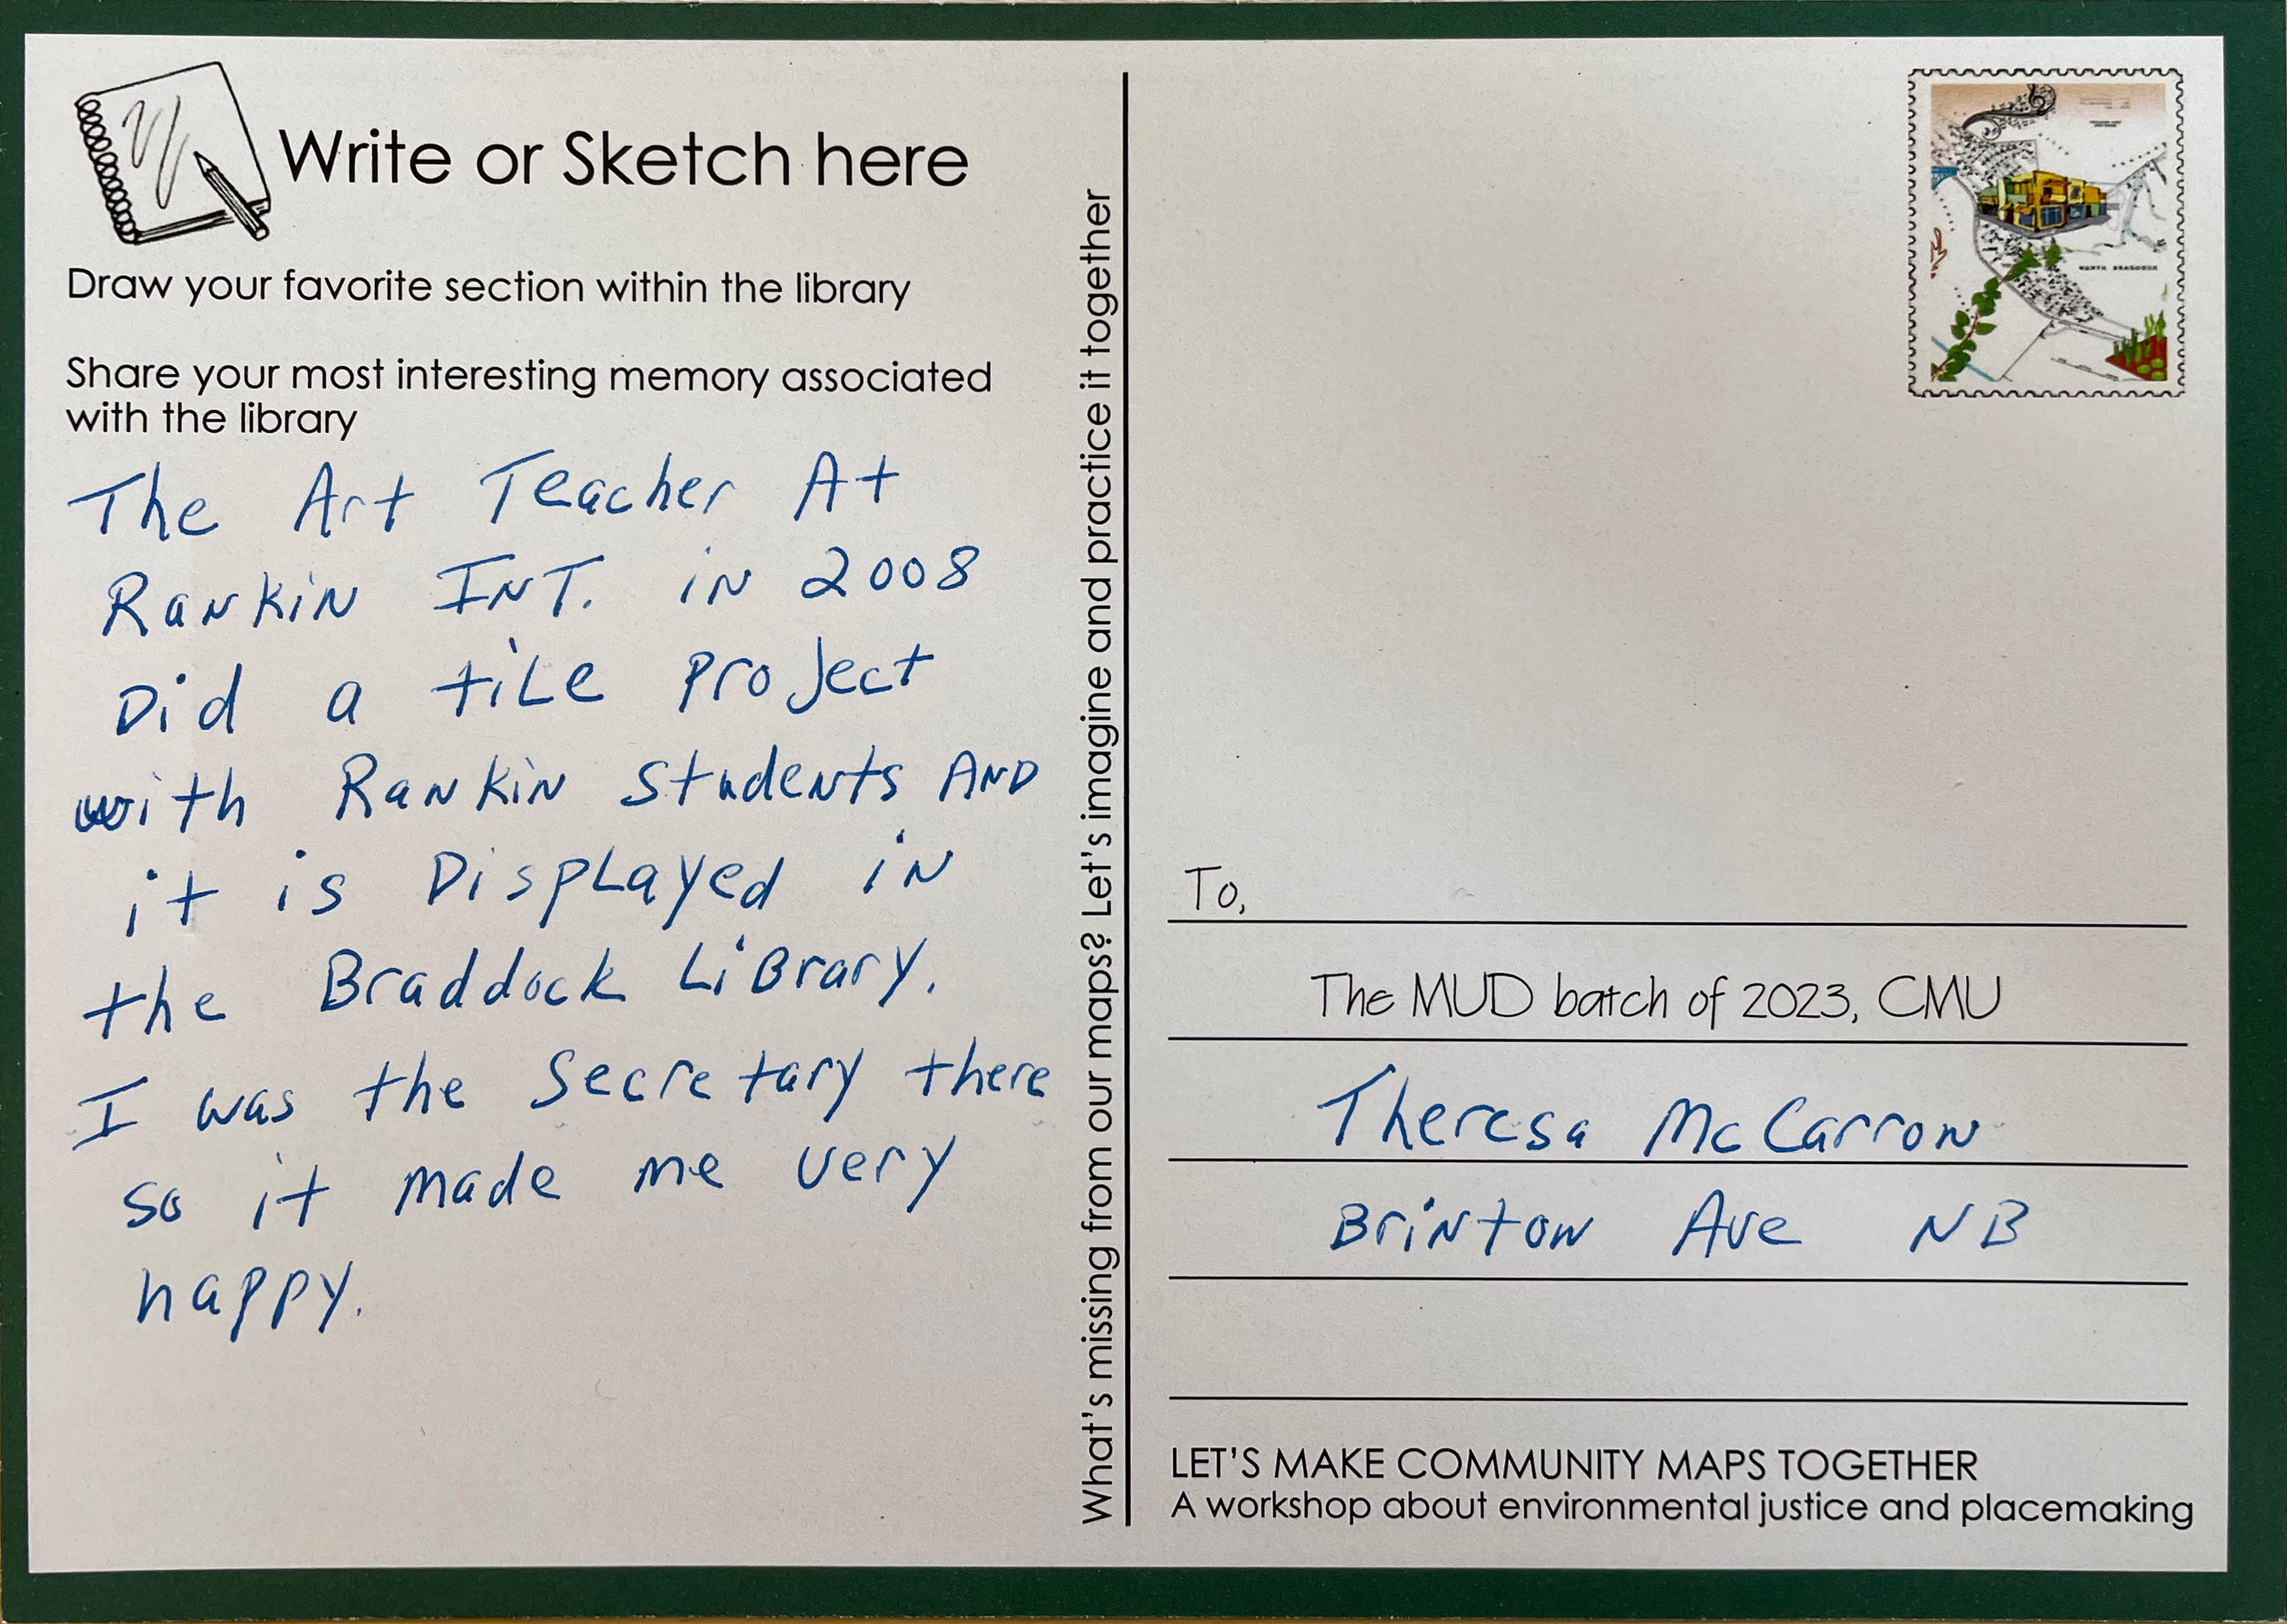 Write or Sketch here
Draw your favorite section within the library
Share your most interesting memory associated
with the library
The Art Teacher At
Rankin INT. in 2008
Did a tile project
with Rankin Students AND
it is Displayed in
the Braddock Library.
I was the Secretary there
so it made me very
happy.
What's missing from our maps? Let's imagine and practice it together
NORTH BRADDOCK
To,
The MUD batch of 2023, CMU
Theresa McCarron
Brinton Ave NB
LET'S MAKE COMMUNITY MAPS TOGETHER
A workshop about environmental justice and placemaking